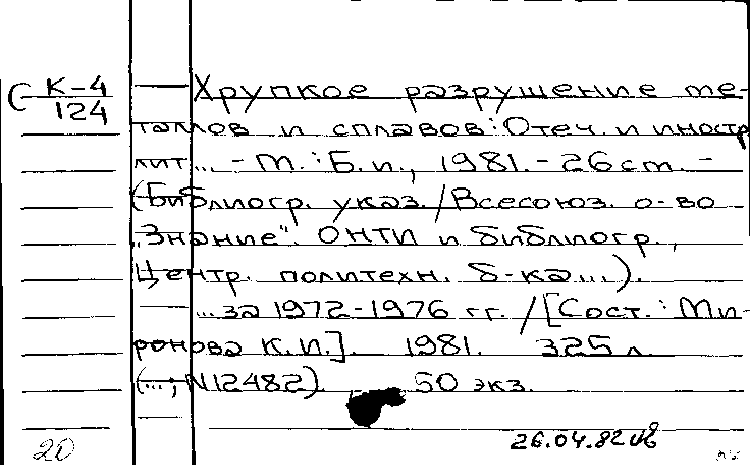 С К-4
124
Хрупкое разрушение ме-
таллов и сплавов: Отеч. и иностр.
лит... - М.: Б.и., 1981. - 26 см. -
(Библиогр. указ. / Всесоюз. о-во
"Знание". ОНТИ и библиогр.,
Центр. политехн. б-ка...).
...за 1972-1976 гг. / [Сост.: Ми-
ронова К.И.]. 1981. 325 л.
(...; N12482). 50 экз.
26.04.82
20